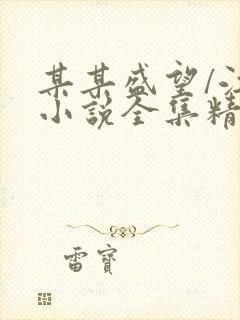 某某盛望/
小说全集精
雷寶